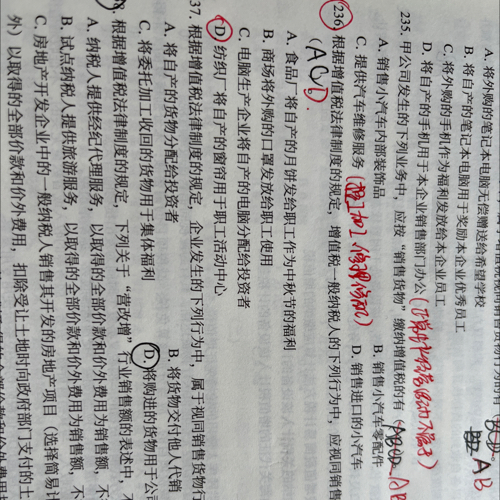 A. 将外购的笔记本电脑无偿赠送给希望学校
B. 将自产的笔记本电脑用于奖励本企业优秀员工
C. 将外购的手机作为福利发放给本企业员工
D. 将自产的手机用于本企业销售部门办公
AB
235. 甲公司发生的下列业务中，应按“销售货物”缴纳增值税的有
A. 销售小汽车内部装饰品
B. 销售小汽车零配件
C. 提供汽车维修服务
D. 销售进口的小汽车
236. 根据增值税法律制度的规定，增值税一般纳税人的下列行为中，应视同销售
(ACD).
A. 食品厂将自产的月饼发给职工作为中秋节的福利
B. 商场将外购的口罩发放给职工使用
C. 电脑生产企业将自产的电脑分配给投资者
D. 纺织厂将自产的窗帘用于职工活动中心
37. 根据增值税法律制度的规定，企业发生的下列行为中，属于视同销售货物行
A. 将自产的货物分配给投资者
B. 将货物交付他人代销
C. 将委托加工收回的货物用于集体福利
D. 将购进的货物用于公司
根据增值税法律制度的规定，下列关于“营改增”行业销售额的表述中，不
A. 纳税人提供经纪代理服务，以取得的全部价款和价外费用为销售额，不
B. 试点纳税人提供旅游服务，以取得的全部价款和价外费用为销售额，不
C. 房地产开发企业中的一般纳税人销售其开发的房地产项目（选择简易计
外）以取得的全部价款和价外费用，扣除受让土地时向政府部门支付的土